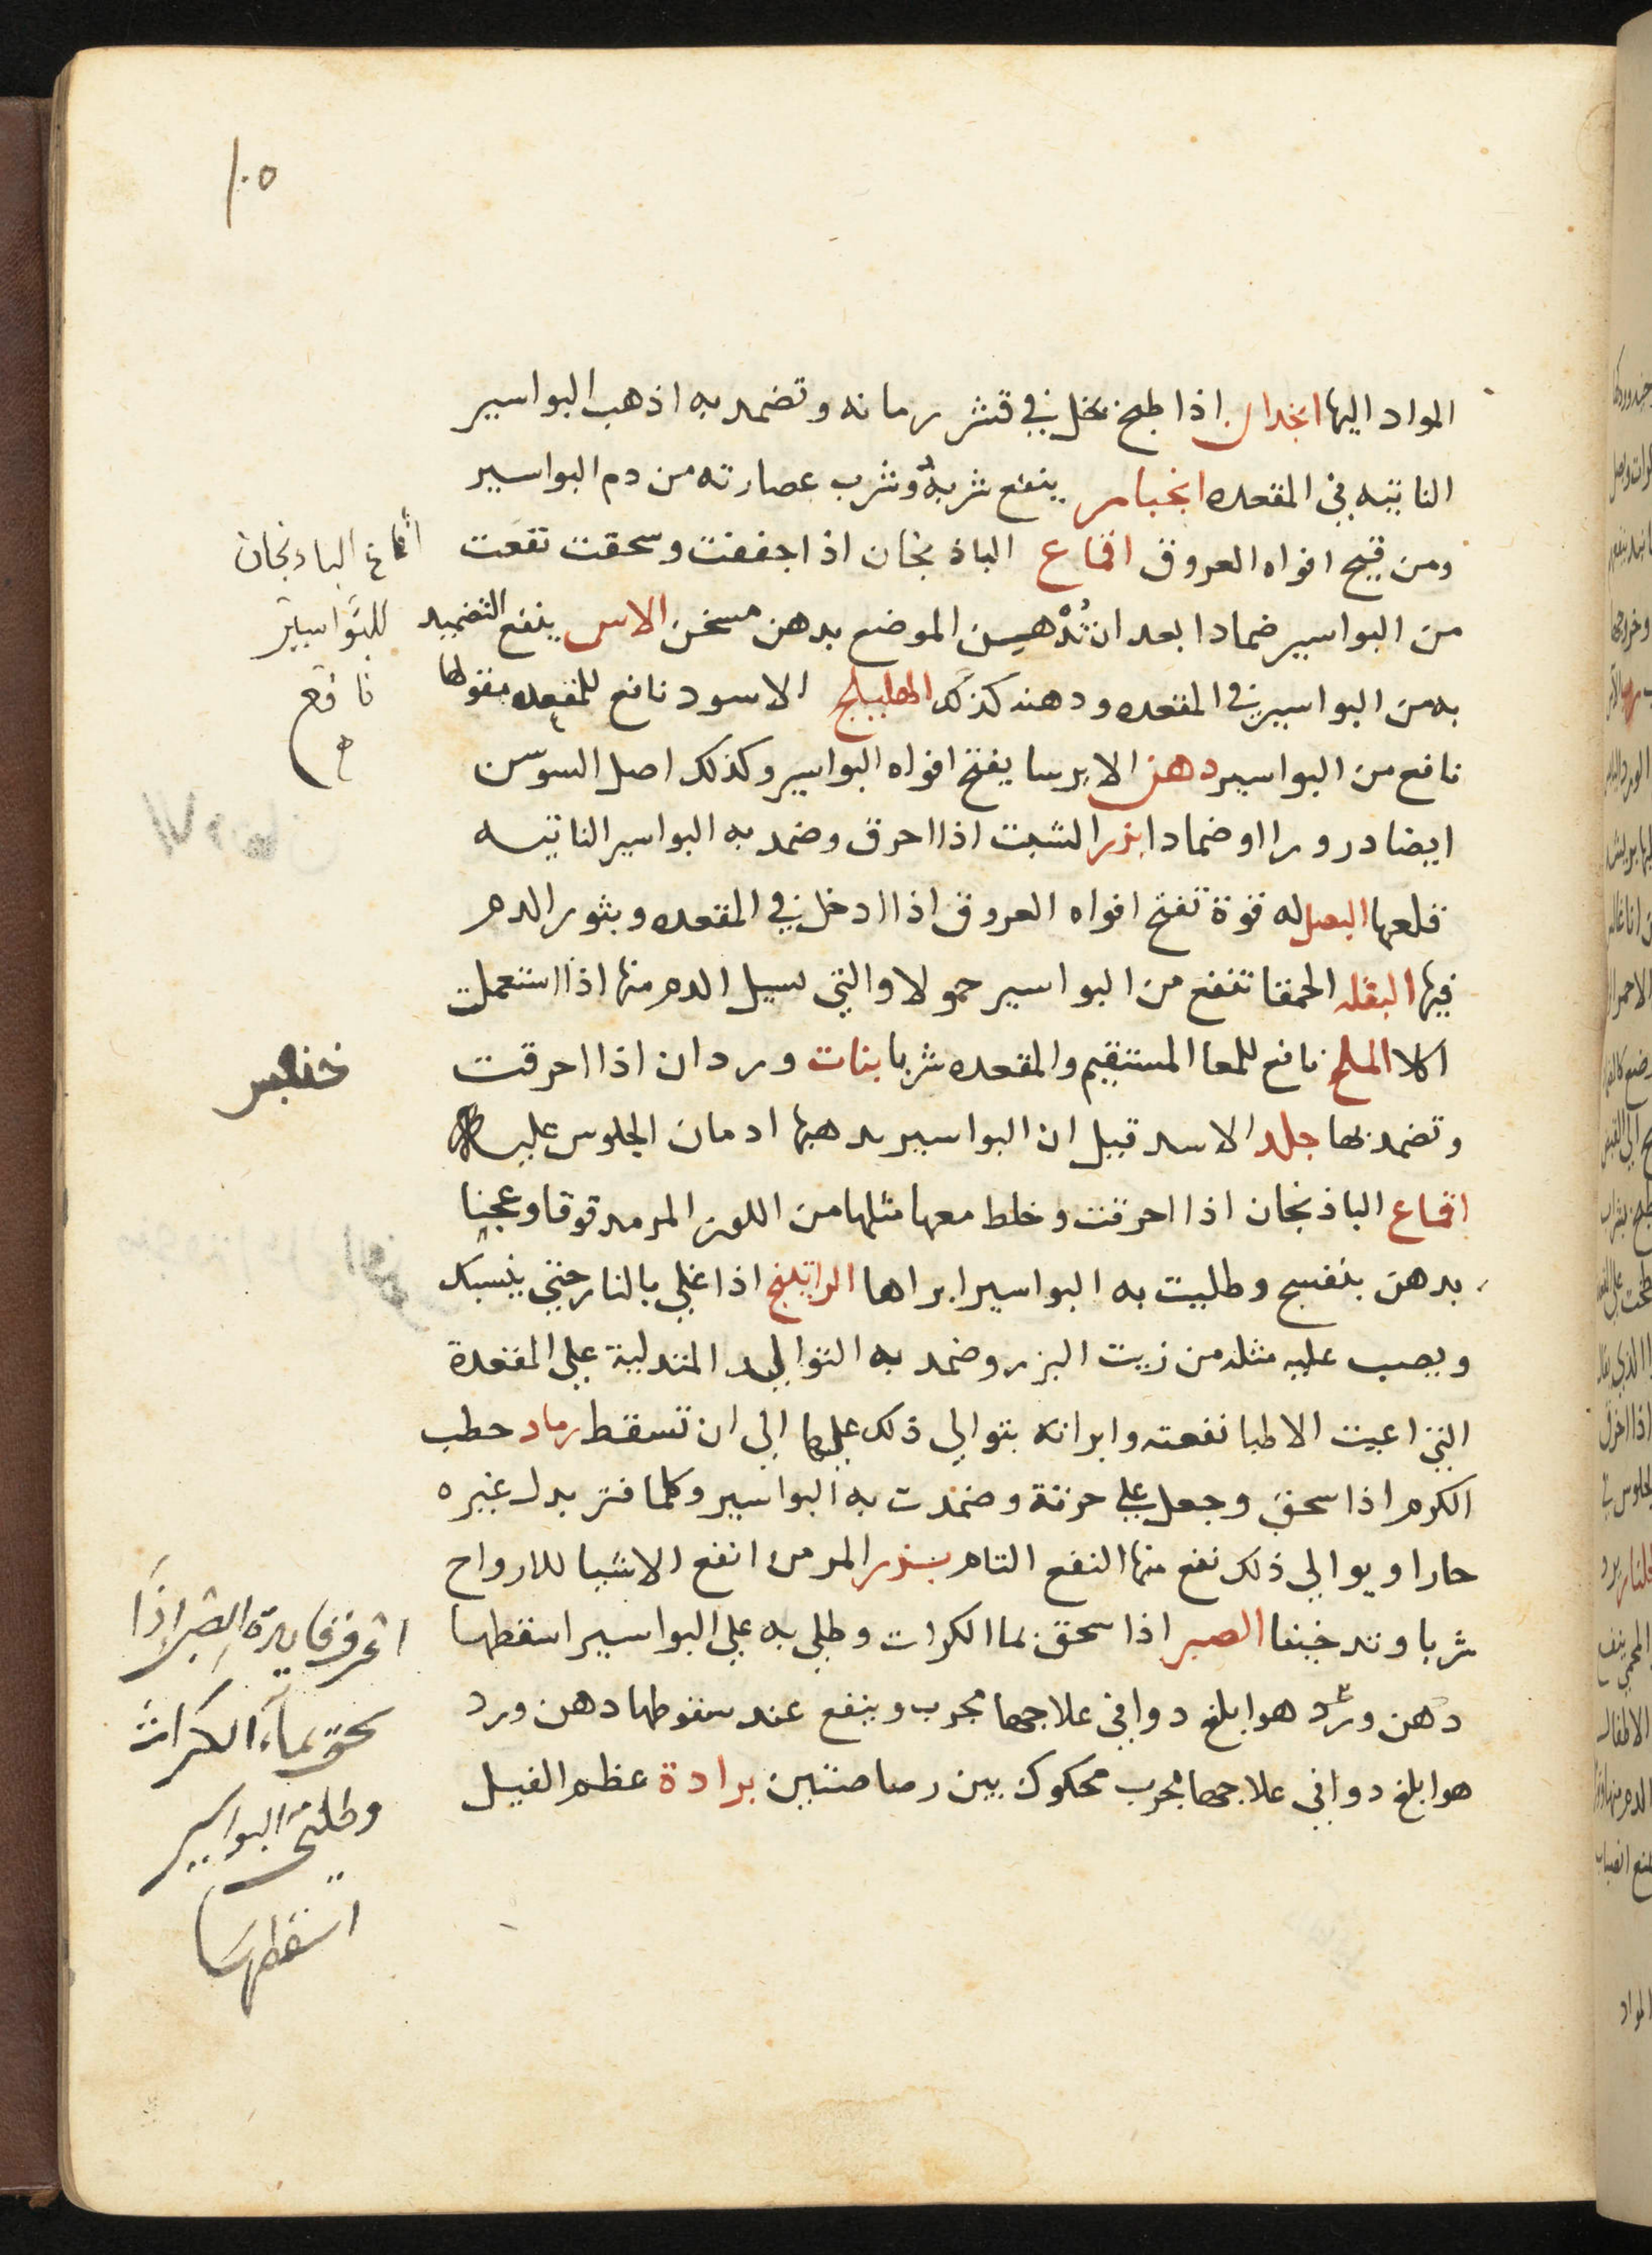 ١٠٥
المواد اليها انجدان اذا طبخ بخل في قشر رمانه وتضمد به اذهب البواسير
الناتيه في المقعده انجبار ينفع شربهُ وشرب عصارته من دم البواسير
ومن قيح افواه العروق اقماع الباذنجان اذا جففت وسحقت نفعت
من البواسير ضمادا بعد ان تُدْهن الموضع بدهن مسخن الاس ينفع التضميد
به من البواسير في المقعده ودهنه كذلك الهليلج الاسود نافع للمقعده
نافع من البواسير دهن الايرسا يفتح افواه البواسير وكذلك اصل السوسن
ايضا درورا او ضمادا بزر الشبت اذا احرق وضمد به البواسير الناتيه
قلعها البصل له قوة تفتح افواه العروق اذا ادخل في المقعده ويثور الدم
فيها البقله الحمقا تنفع من البواسير حمولا والتي يسيل الدم منها اذا استعملت
اكلا الملح نافع للمعا المستقيم والمقعده شربا بنات وردان اذا احرقت
وتضمد بها جلد الاسد قيل ان البواسير يدهبها ادمان الجلوس عليه
اقماع الباذنجان اذا احرقت وخلط معها مثلها من اللوز المر مدقوقا وعجنا
بدهن بنفسج وطليت به البواسير ابراها الراتينج اذا غلي بالنار حتي ينسبك
ويصب عليه مثله من زيت البزر وضمد به التواليل المتدلية علي المقعدة
التي اعيت الاطبا نفعته وابراته بتوالي ذلك عليها الي ان تسقط رماد حطب
الكرم اذا سحق وجعل علي خرقة وضمدت به البواسير وكلما فتر بدل غيره
حارا ويوالي ذلك نفع منها النفع التام بزر المر من انفع الاشيا للارواح
شربا وتدخينا الصبر اذا سحق بما الكرات وطلي به علي البواسير اسقطها
دهن ورد هو ابلغ دوا في علاجها مجرب وينفع عند سقوطها دهن ورد
هو ابلغ دوا في علاجها مجرب محكوك بين رصاصتين برادة عظم الفيل
أقماع البادنجان
للبواسير
نافع
اعرف فايدة الصبر إذا
سحق بماء الكراث
وطلي البواسير
اسقطها